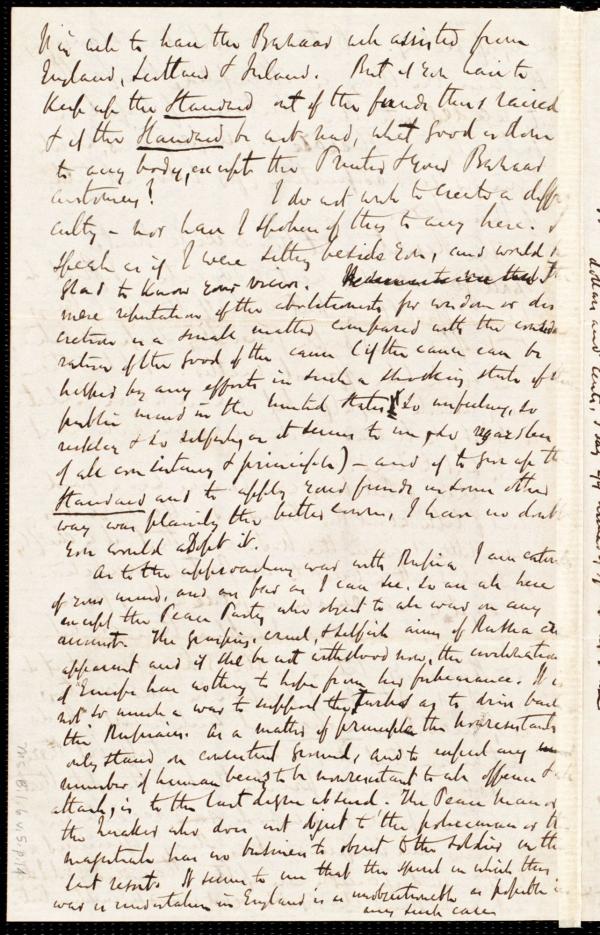 to have the Bazaar all assisted from
England, Scotland & Ireland. But if you have to
keep up the Standard out of the funds thus raised
& if the Standard be not read, what good is done
to any body, except the Printer & your Bazaar
customers? I do not wish to create a diffi
culty – nor have I spoken of this to any here. I
speak as if I were sitting beside you, and would be
glad to know your views. The
mere reputation of the abolitionists for wisdom or dis
cretion is a small matter compared with the conside
ration of the good of the cause (if the cause can be
helped by any efforts in such a shocking state of the
public mind in the United States, so unfeeling, so
reckless & so selfish, as it seems to me, so regardless
of all consistency & principle) – and if to give up the
Standard and to apply your funds in some other
way was plainly the better course, I have no doubt
you would adopt it.
As to the approaching war with Russia I am entirely
of your mind, and as far as I can see, so are all here
except the Peace Party who object to all war on any
account. The grasping, cruel, & selfish aims of Russia are
apparent and if she be not withstood now, the civilization
of Europe has nothing to hope from her forbearance. It is
not so much a war to support the Turks as to drive back
the Russians. As a matter of principle the nonresistants
only stand on consistent ground, and to expect any
number of human beings to be nonresistant to all offence &
attack, is to the last degree absurd. The Peace man or
the Quaker who does not object to the policeman or the
magistrate has no business to object to the soldier in the
last resort. It seems to me that the spirit in which this
war is undertaken in England is as unobjectionable as possible in
any such case
dollars and cents, I say